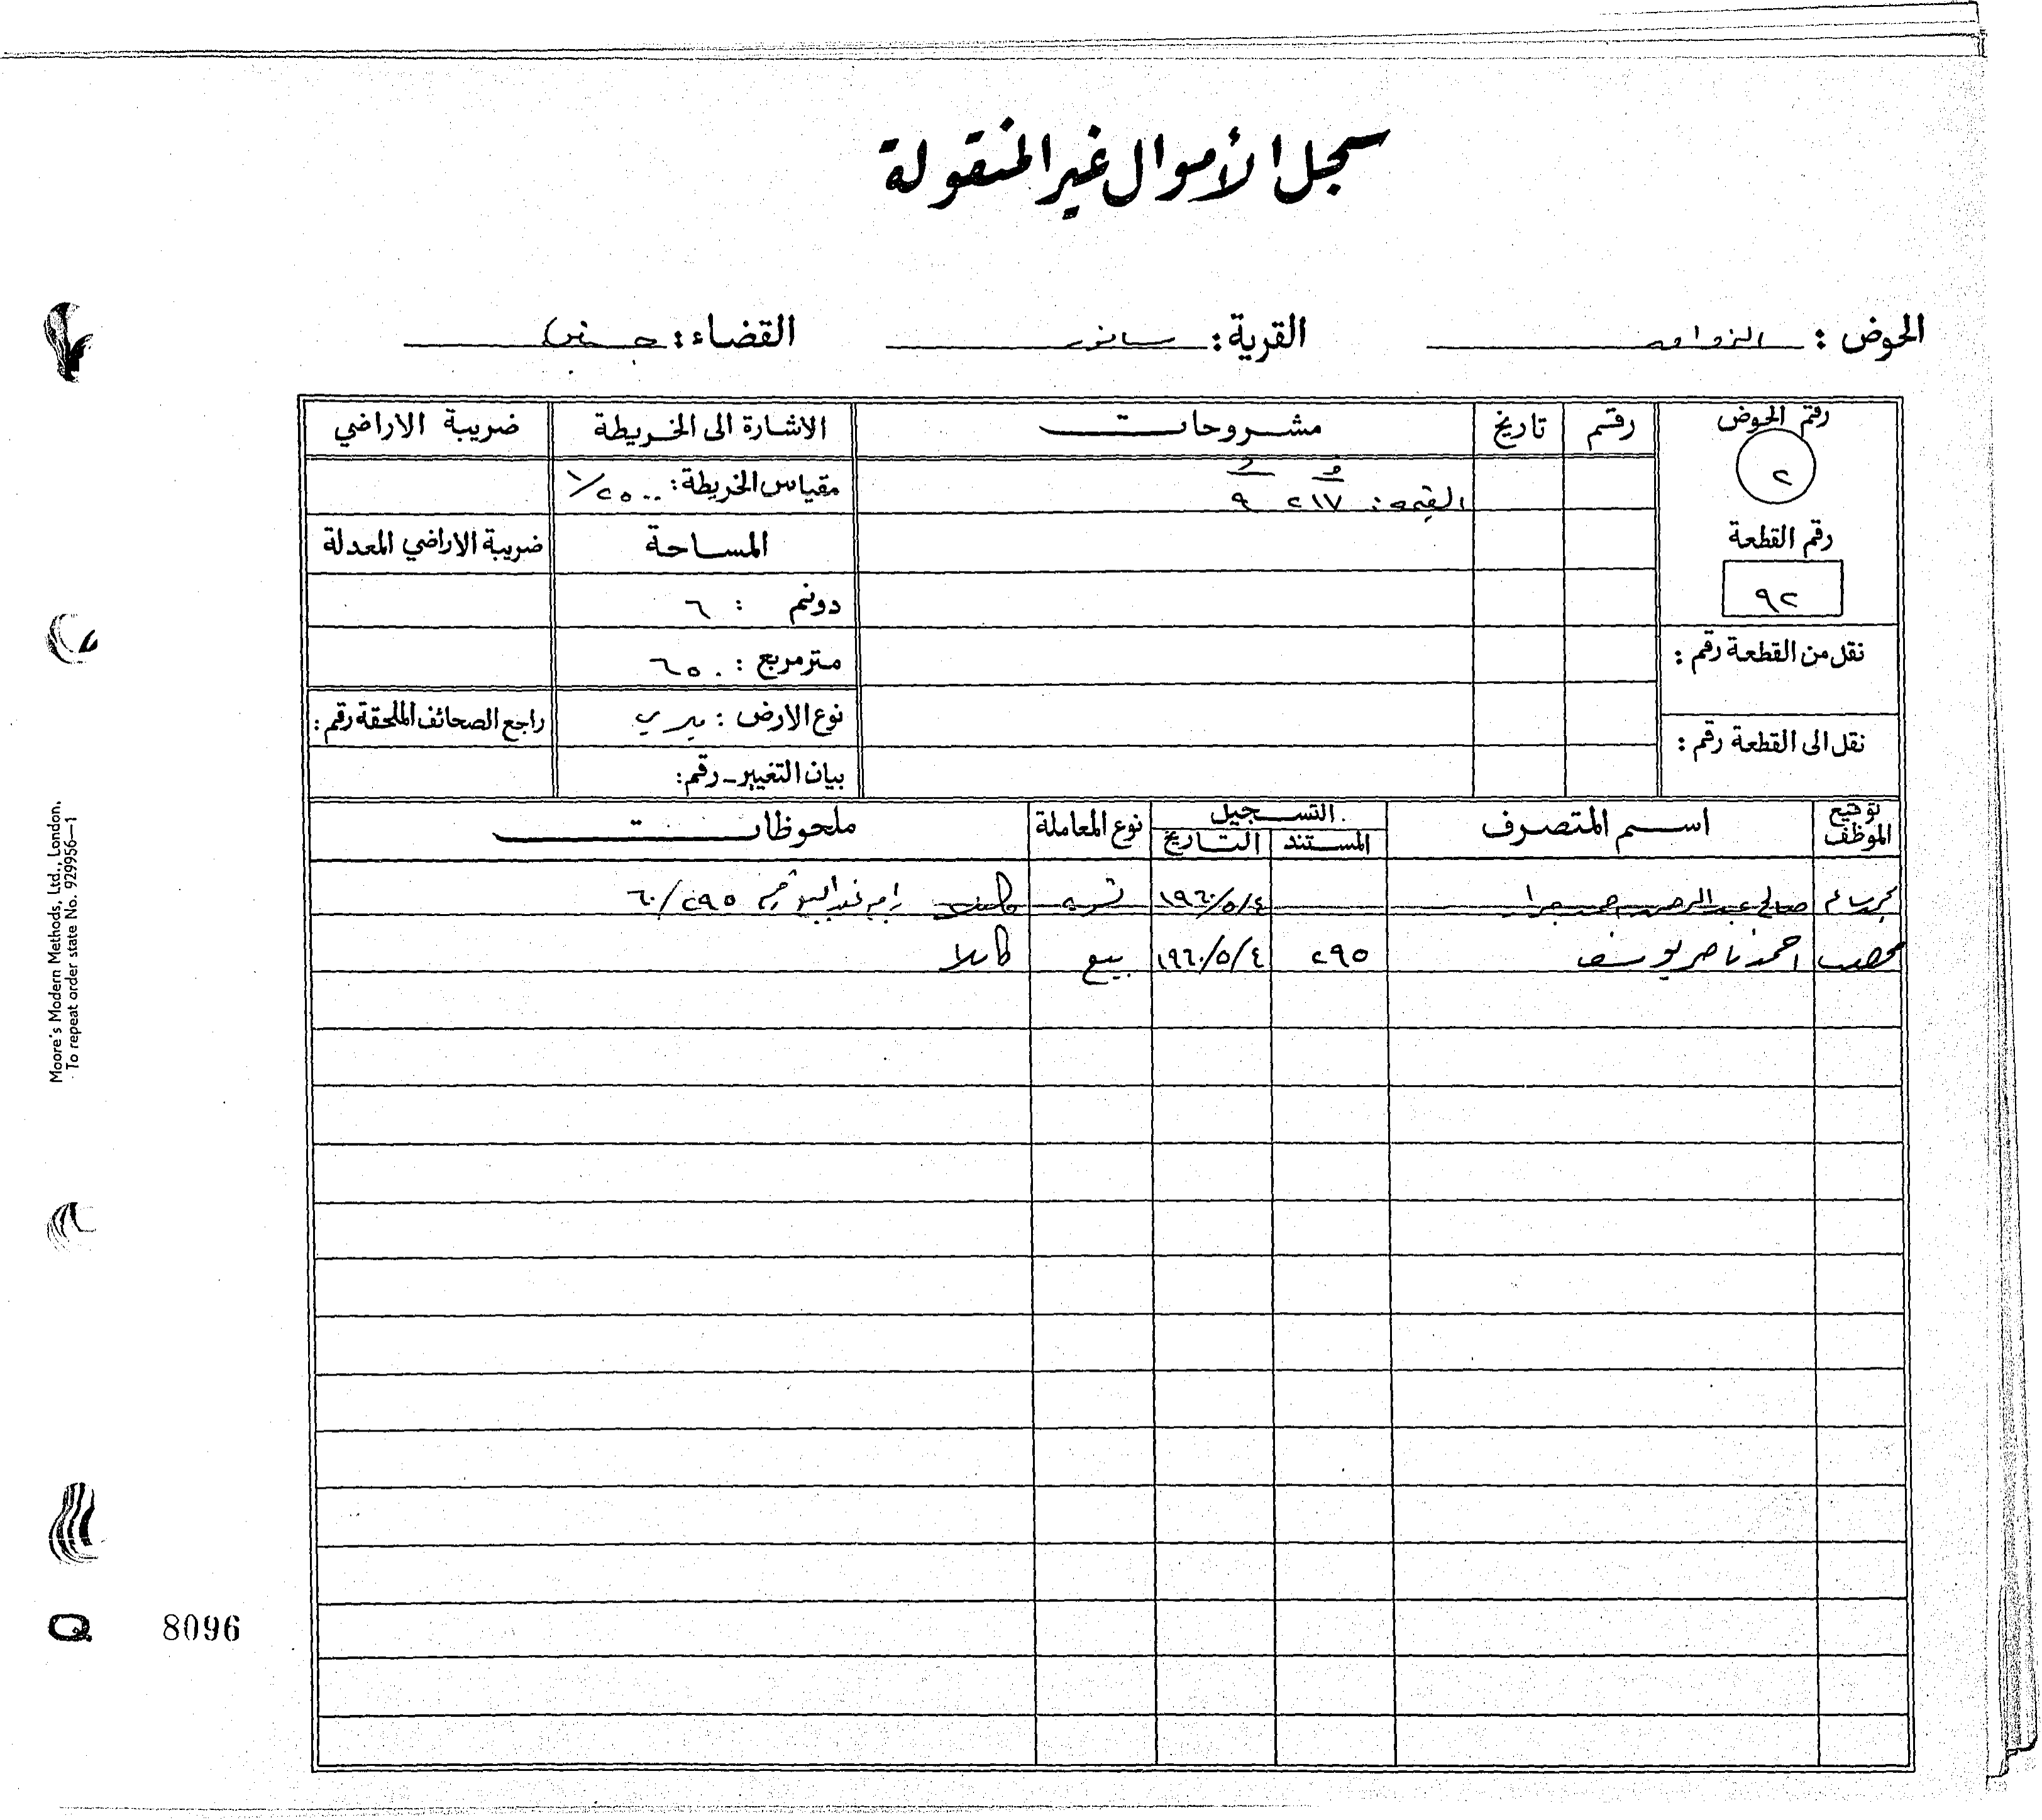 سجل الأموال غير المنقولة
الحوض : القرية : سانور القضاء : جنين
رقم الحوض رقم تاريخ مشروحات الاشارة الى الخريطة ضريبة الاراضي
٢
ف د
القيمة : ٢١٧ ٩
مقياس الخريطة : ١/٢٥٠٠
رقم القطعة
المساحة ضريبة الاراضي المعدلة
٩٢
دونم : ٦
نقل من القطعة رقم :
متر مربع : ٦٥٠
نوع الارض : ميري راجع الصحائف الملحقة رقم :
نقل الى القطعة رقم :
بيان التغيير - رقم :
توقيع الموظف اسم المتصرف التسجيل نوع المعاملة ملحوظات
المستند التاريخ
صالح عبد الرحمن احمد جرار ١٩٦٠/٥/٤ تسوية كاملا راجع عقد البيع رقم ٦٠/٢٩٥
احمد ناصر يوسف ٢٩٥ ١٩٦٠/٥/٤ بيع كاملا
Moore's Modern Methods, Ltd., London.
To repeat order state No. 929956—1
Q 8096